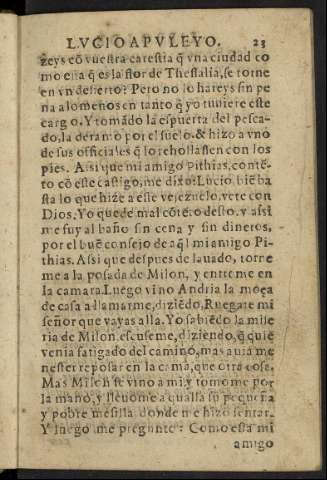 LVCIO APVLEYO. 23
zeys cõ vuestra carestia q̃ vna ciudad co
mo esta q̃ es la flor de Thessalia, se torne
en vn desierto? Pero no lo hareys sin pe
na alomenos en tanto q̃ yo tuuiere este
cargo. Y tomãdo la espuerta del pesca-
do, la derramo por el suelo. & hizo a vno
de sus officiales q̃ lo rehollassen con los
pies. Assi que mi amigo Pithias, contẽ-
to cõ este castigo, me dixo: Lucio biẽ ba
sta lo que hize a este vejezuelo, vete con
Dios. Yo quede mal cõtẽto desto, y assi
me fuy al baño sin cena y sin dineros,
por el buẽ consejo de aq̃l mi amigo Pi-
thias. Assi que despues de lauado, torne
me a la posada de Milon, y entreme en
la camara. Luego vino Andria la moça
de casa a llamarme, diziẽdo, Ruegate mi
señor que vayas alla. Yo sabiẽdo la mise
ria de Milon, escuseme, diziendo, q̃ quie
venia fatigado del camino, mas auia me
nester reposar en la cama, que otra cosa.
Mas Milon se vino a mi, y tomome por
la mano, y lleuome a qualla su pequeña
y pobre mesilla donde me hizo sentar.
Y luego me pregunte: Como esta mi
amigo